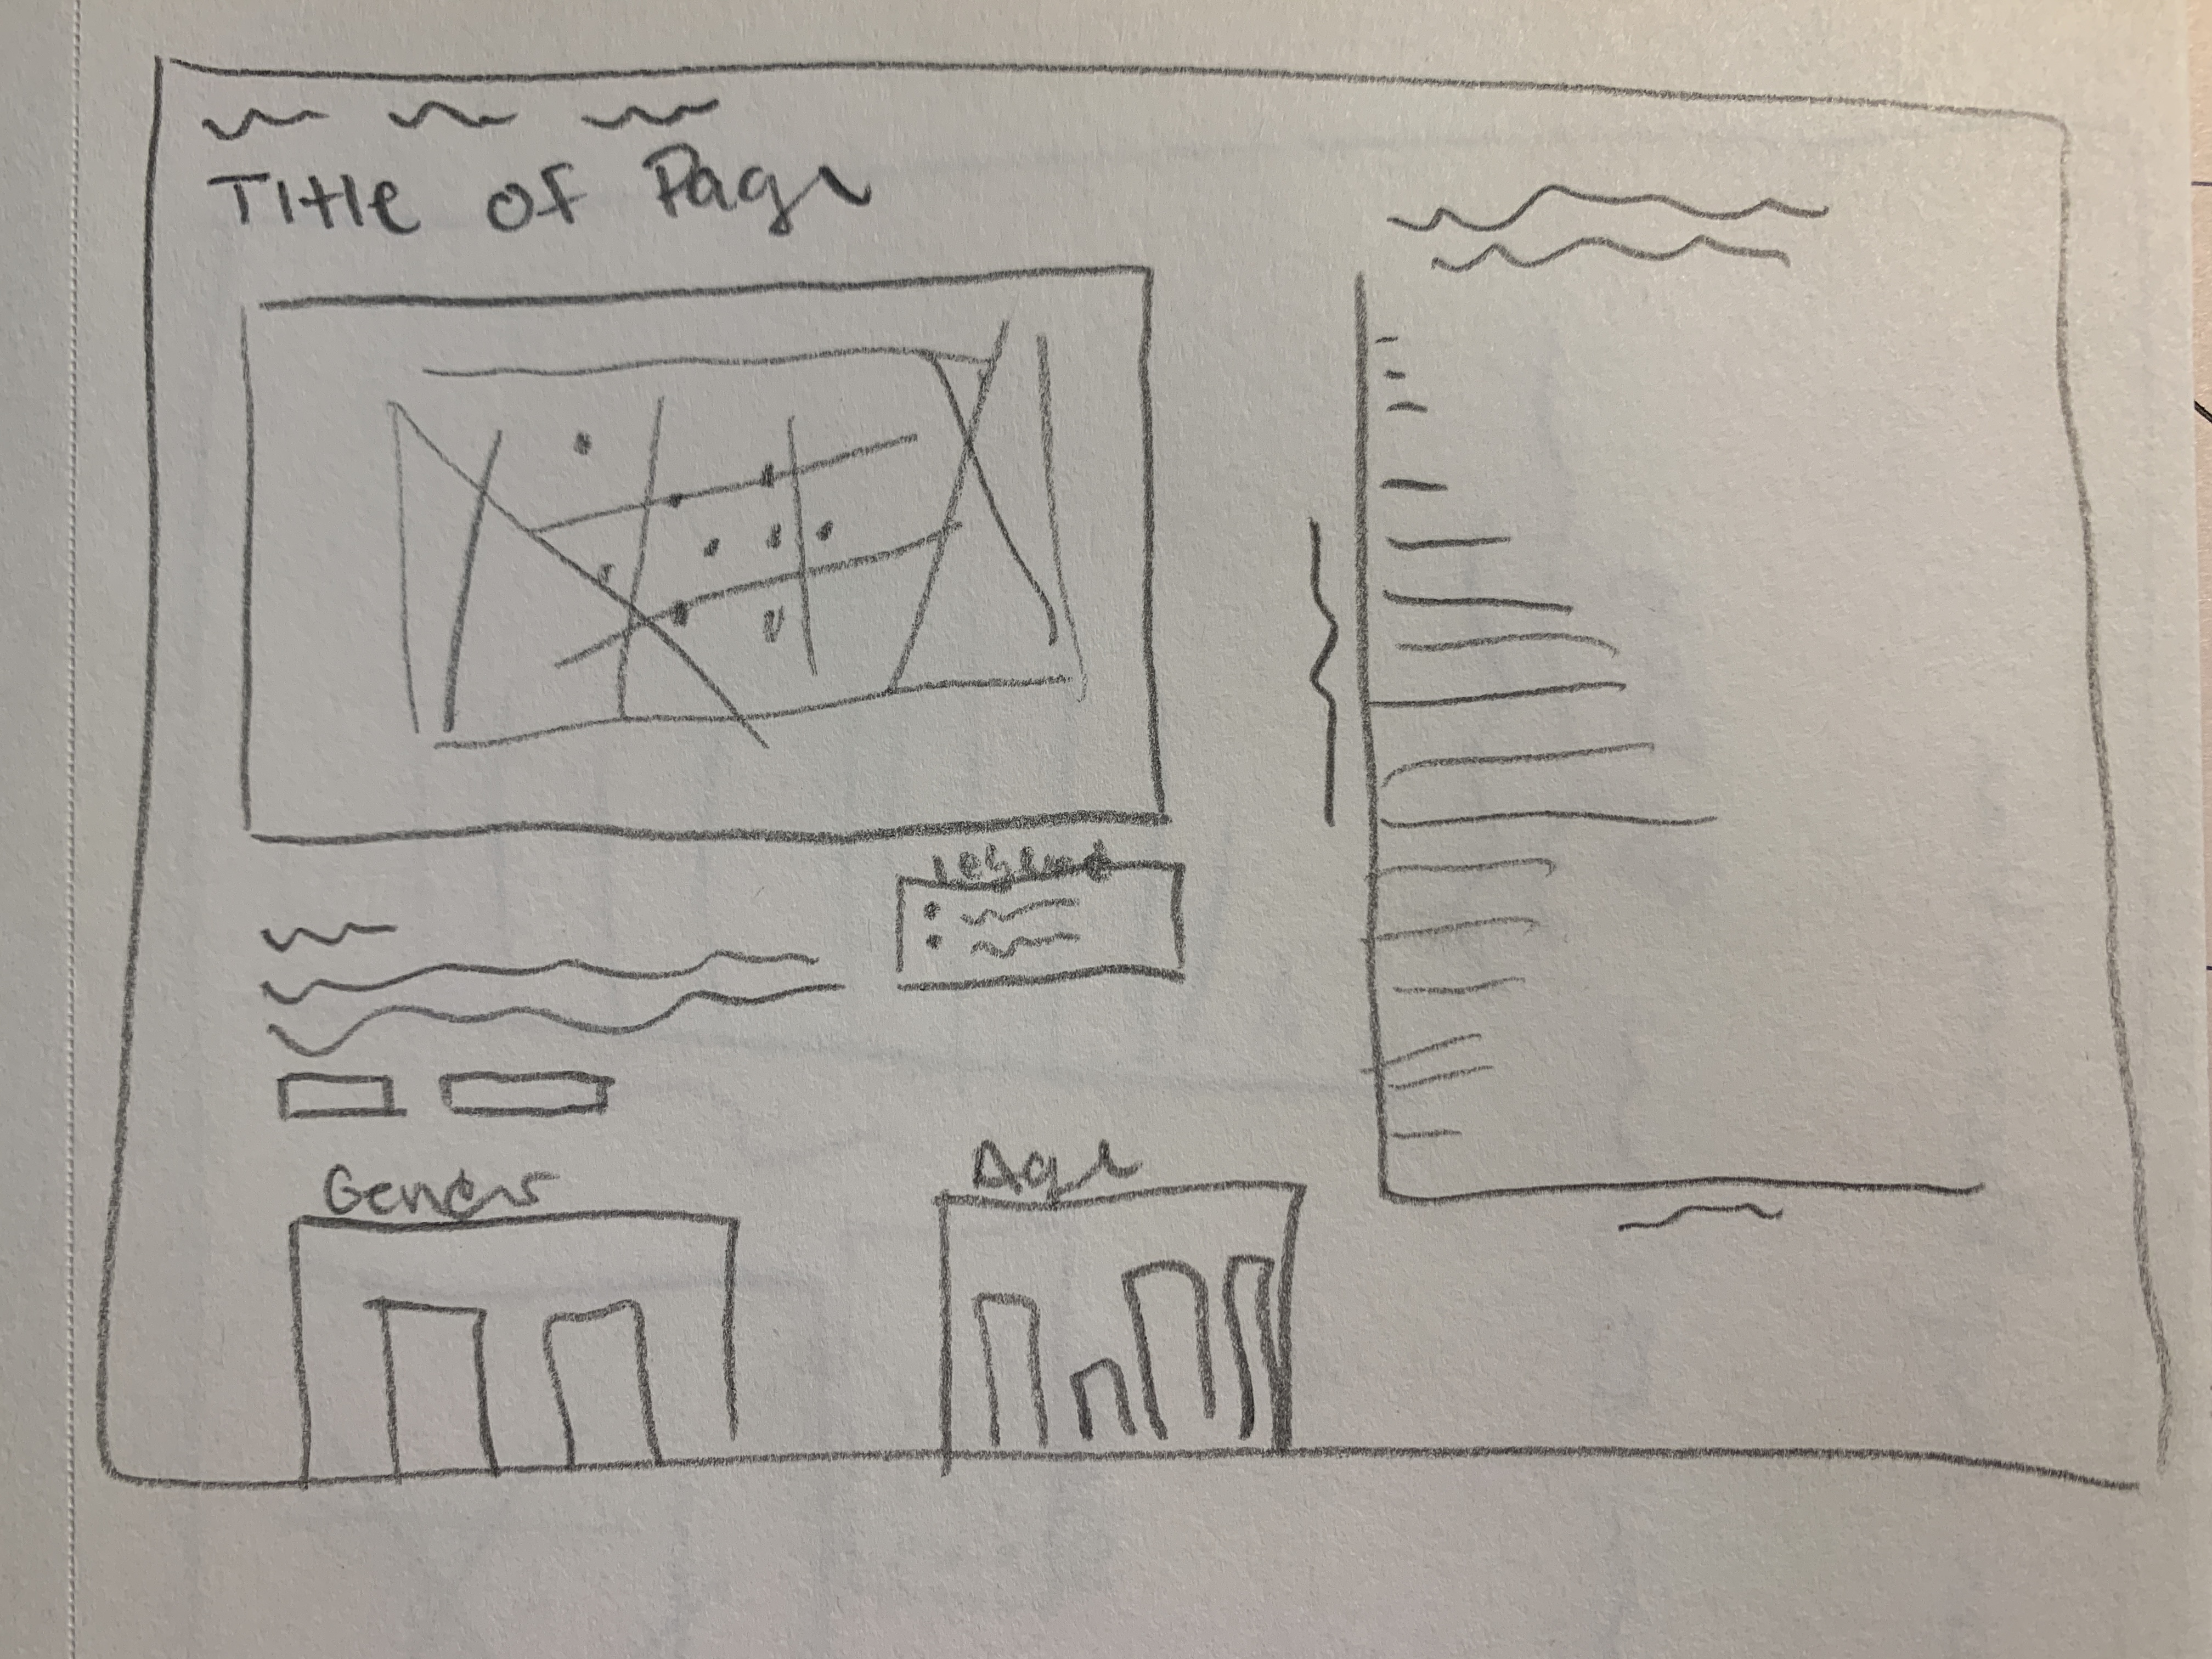 Title of Page
Legend
Gender
Age